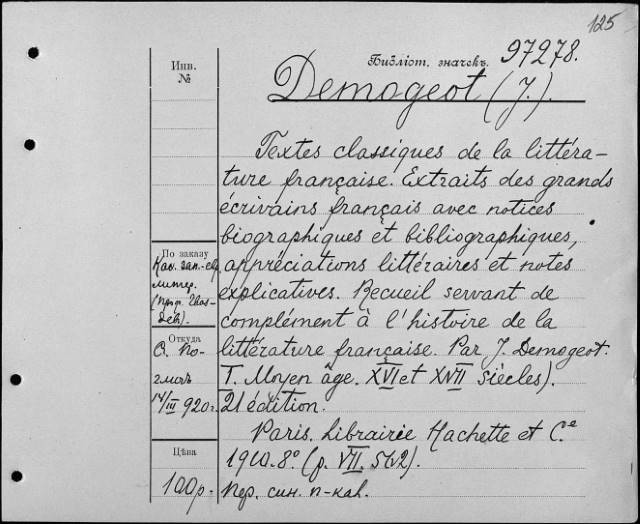 125
Библіот. значекъ. 97278.
Инв.
№
Demogeot (J.).
Textes classiques de la littéra-
ture française. Extraits des grands
écrivains français avec notices
biographiques et bibliographiques,
По заказу
Каѳ. зап.-евр.
appréciations littéraires et notes
литер.
explicatives. Recueil servant de
(проф.
complément à l'histoire de la
Откуда
littérature française. Par J. Demogeot.
T. Moyen âge. XVI et XVII siècles).
14/III 920 г.
21 édition.
Paris. Librairie Hachette et C.ie
Цѣна
1910. 8° (p. VII. 562).
100 р.
Пер. син. п-кал.